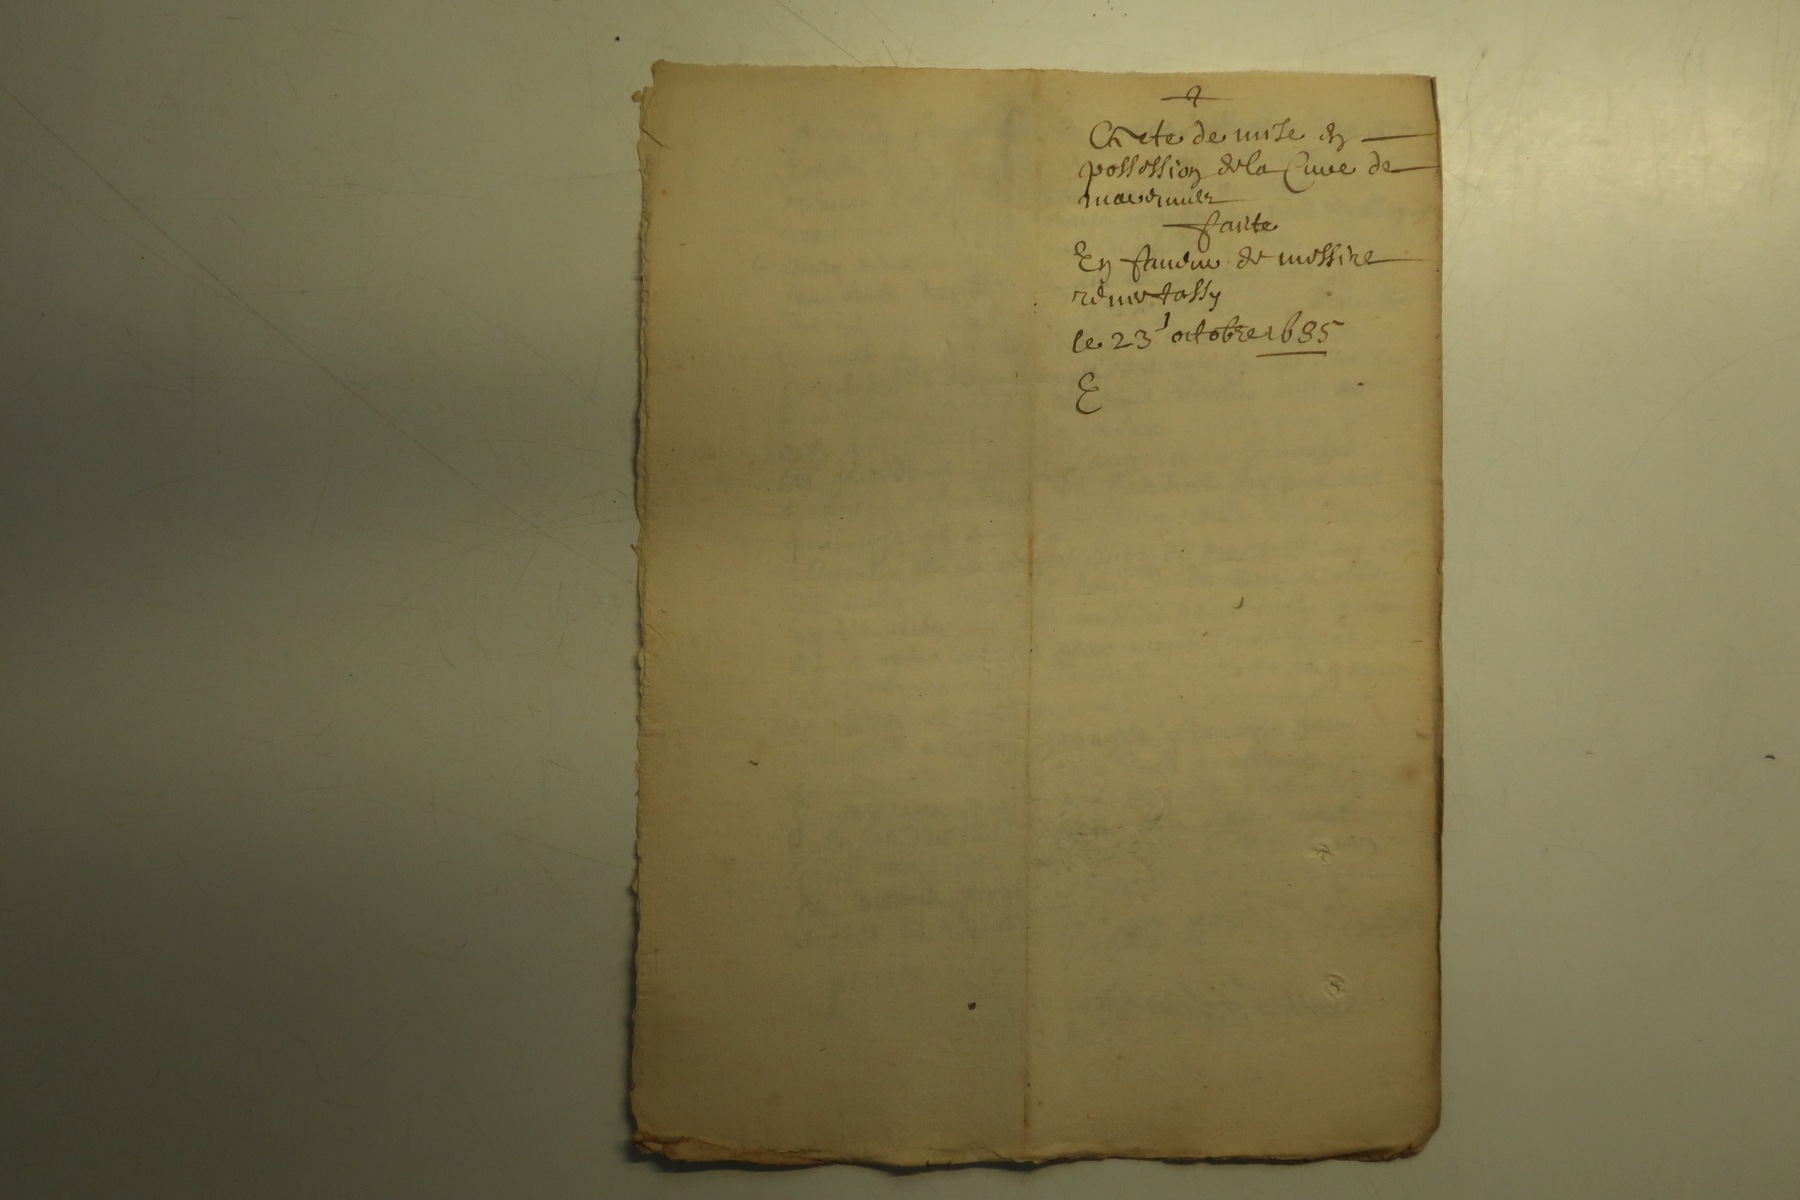 Acte de mise en
possession de la Cure de
faicte
En faveur de messire
le 23 octobre 1685
E